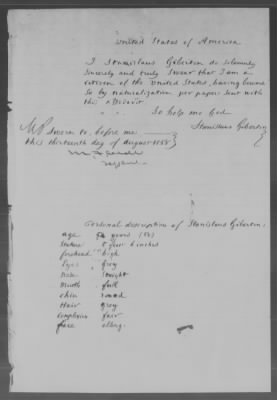 United States of America
I Stanislaus Giberton do solemnly
sincerely and truly swear that I am a
citizen of the United States, having become
so by naturalization per papers sent with
this affidavit
So help me God
Sworn to, before me Stanislaus Giberton
this thirteenth day of August 1858
Personal description of Stanislaus Giberton:
age years
Stature 5 feet 6 inches
forehead high
Eyes grey
Nose straight
Mouth full
chin round
Hair grey
Complexion fair
face oblong.